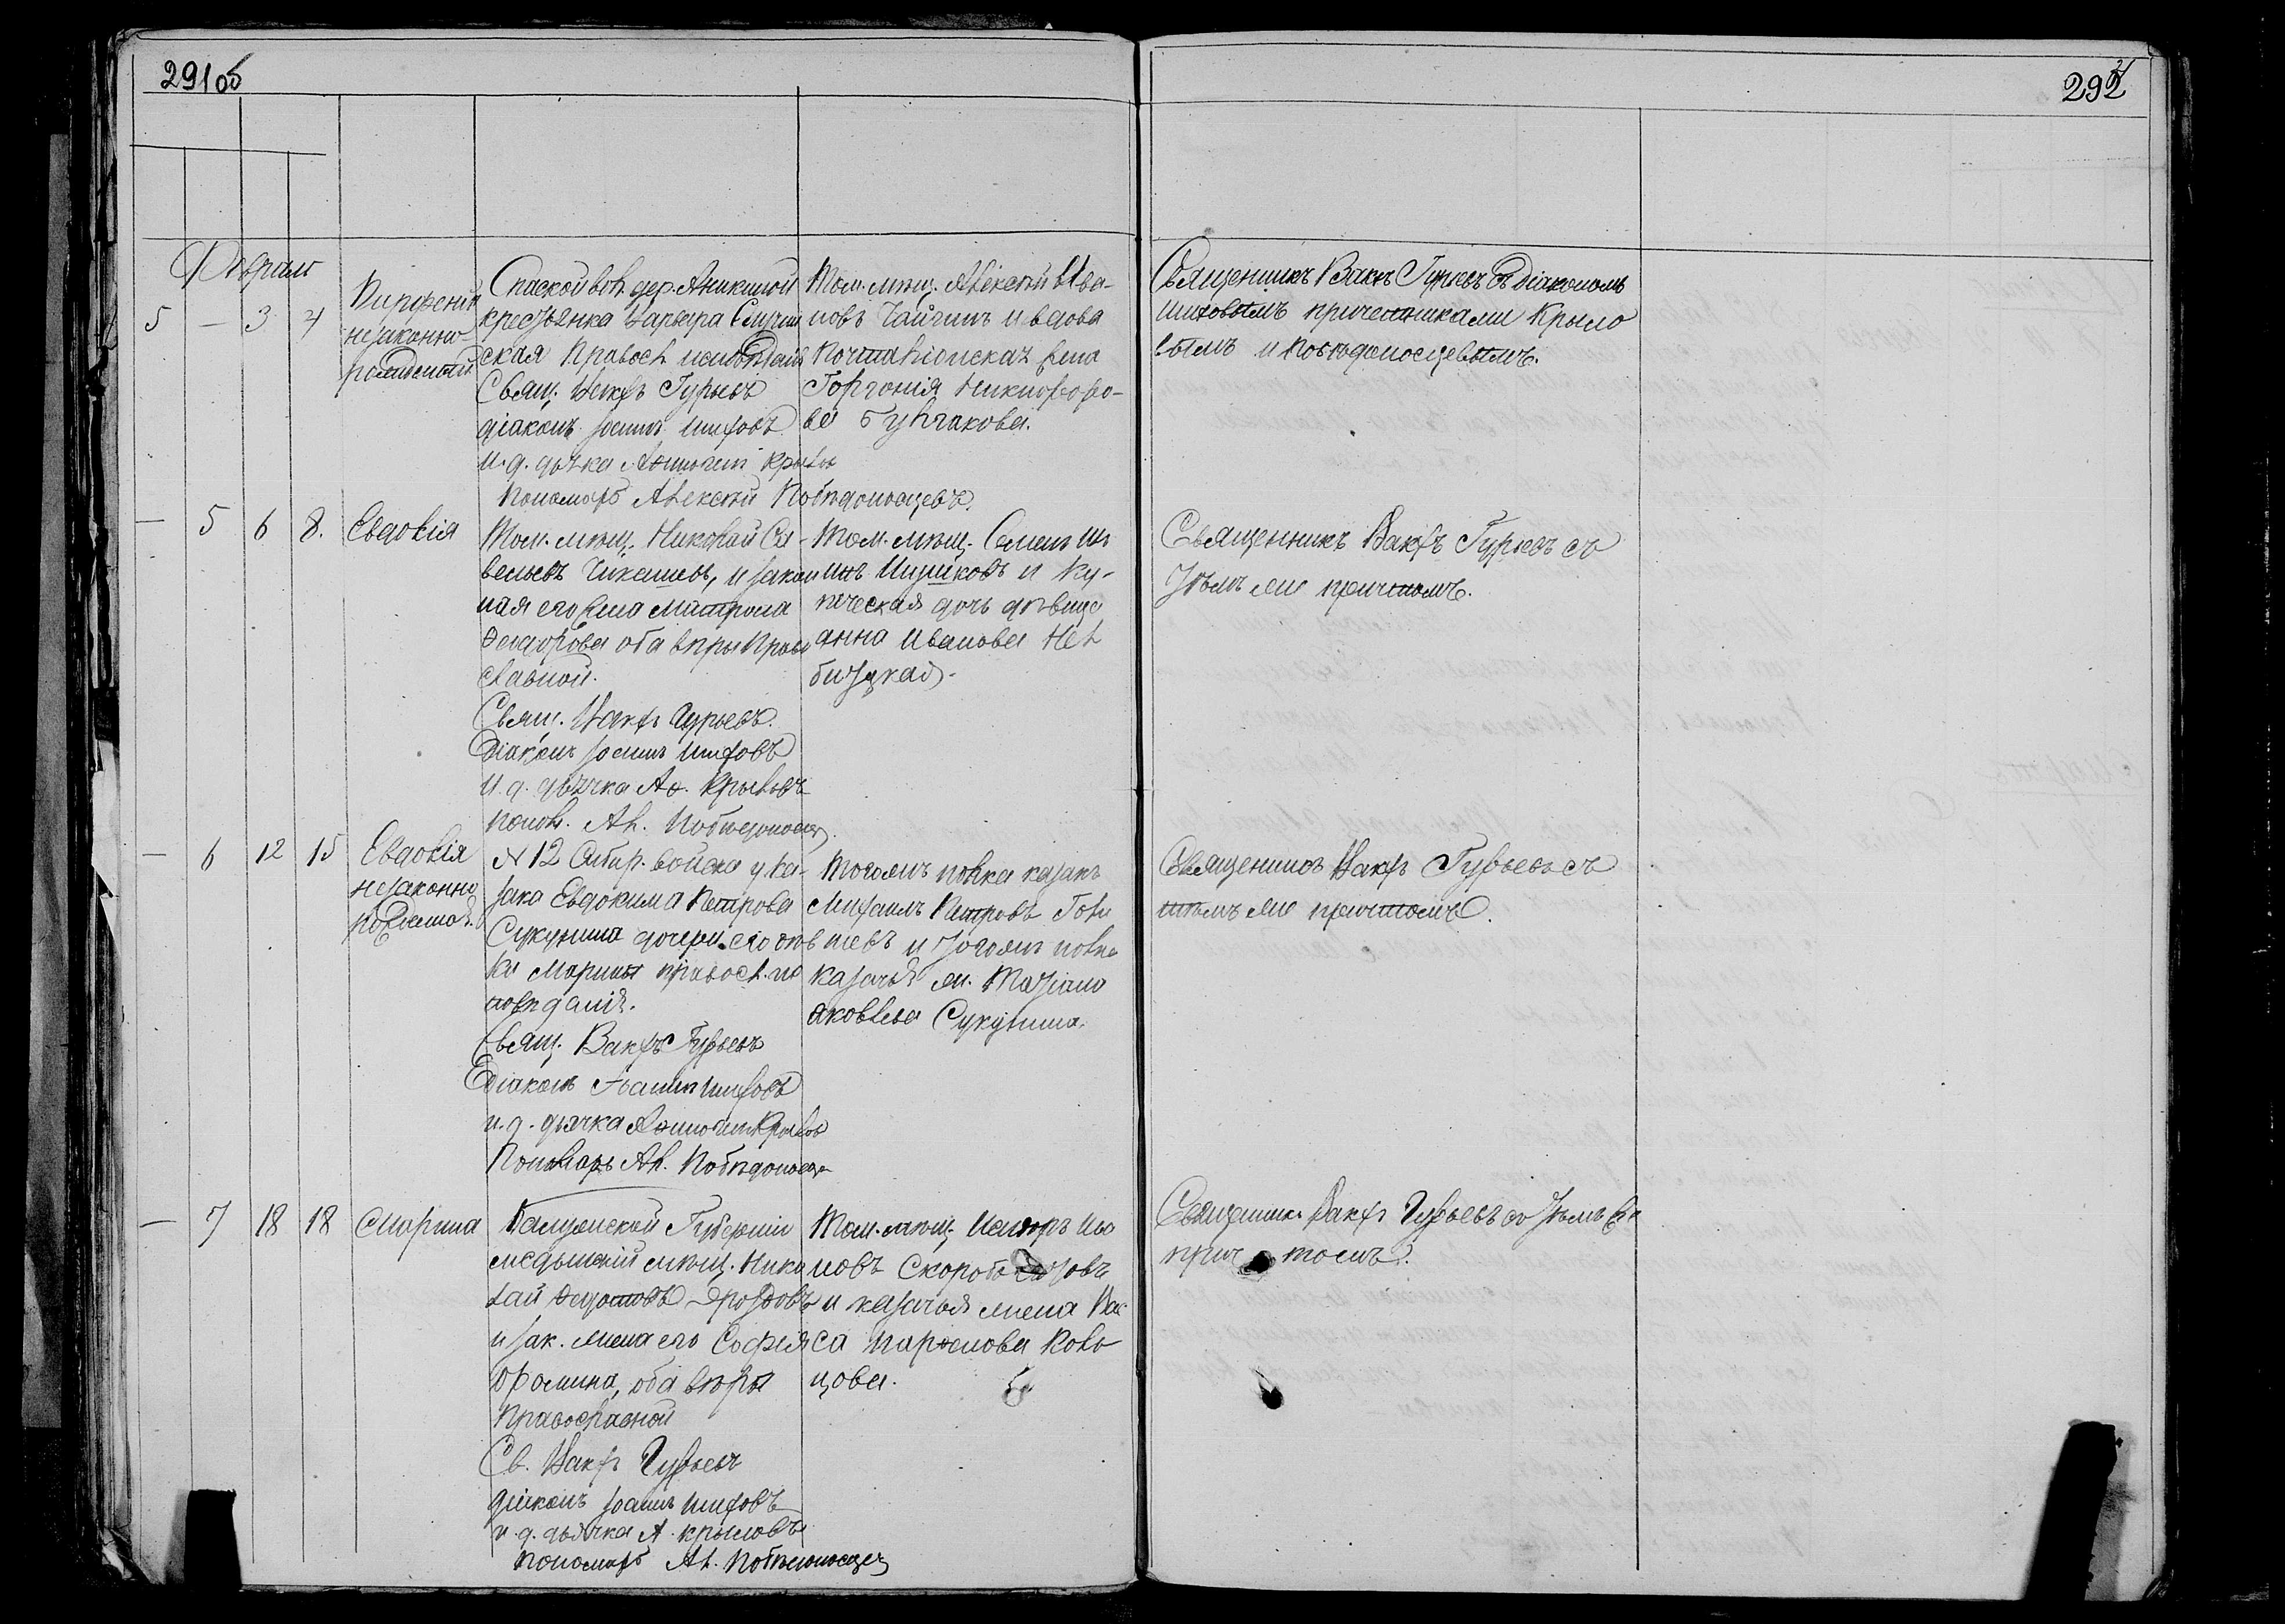 291об
292
Февраль
5 — 3 4
Парфеній
незаконно-
рожденный
Спаской вол. дер. Аникиной
крестьянка Варвара
ская Правосл. исповѣданія
Свящ. Вакхъ Гурьевъ
діаконъ Іоаннъ Шиховъ
и. д. дьячка Крылов
пономарь Алексѣй Побѣдоносцевъ.
Том. мѣщ. Алексѣй Ива-
новъ Чайгинъ и вдова
почталіонская жена
Горгонія Никифоро-
ва
Священникъ Вакхъ Гурьевъ съ діакономъ
Шиховымъ причетниками Крыло
вымъ и Побѣдоносцевымъ.
— 5 6 8. Евдокія
Том. мѣщ. Николай Са-
вельевъ и закон
ная его жена Матрона
Феодорова оба вѣры Право
славной.
Свящ. Вакхъ Гурьевъ.
Діаконъ Іоаннъ Шиховъ
и. д. дьячка Аѳ. Крыловъ
поном. Ал. Побѣдоносцев.
Том. мѣщ. Семенъ Иль
инъ и Ку-
печеская дочь дѣвица
Анна Иванова Не
Священникъ Вакхъ Гурьевъ съ
тѣмъ же причтомъ.
— 6 12 15 Евдокія
незаконно
рожденная.
№ 12 Сибир. войска у ка-
зака Евдокима Петрова
Сукунина дочери его дѣв
ки Марины правосл. ис
повѣданія.
Свящ. Вакхъ Гурьевъ
Діаконъ Іоаннъ Шиховъ
и. д. дьячка Крылов
Пономарь Ал. Побѣдоносцев
Тогожъ полка казакъ
Михаилъ Петровъ
и тогожъ полка
казачья ж. Татіана
Яковлева Сукунина.
Священникъ Вакхъ Гурьевъ съ
тѣмъ же причтомъ.
— 7 18 18 Марина
Калужской Губерніи
медынскій мѣщ. Нико
лай Федотовъ Дроздовъ
и зак. жена его Софія
Фомина, оба вѣры
Православной
Св. Вакхъ Гурьевъ
діаконъ Іоаннъ Шиховъ
и. д. дьячка А. Крыловъ
пономарь Ал. Побѣдоносцев
Том. мѣщ. Ива
новъ Скоробогатовъ
и казачья жена Вас
са Парфенова Коло
цова.
Священник Вакхъ Гурьевъ съ тѣмъ же
причтомъ.